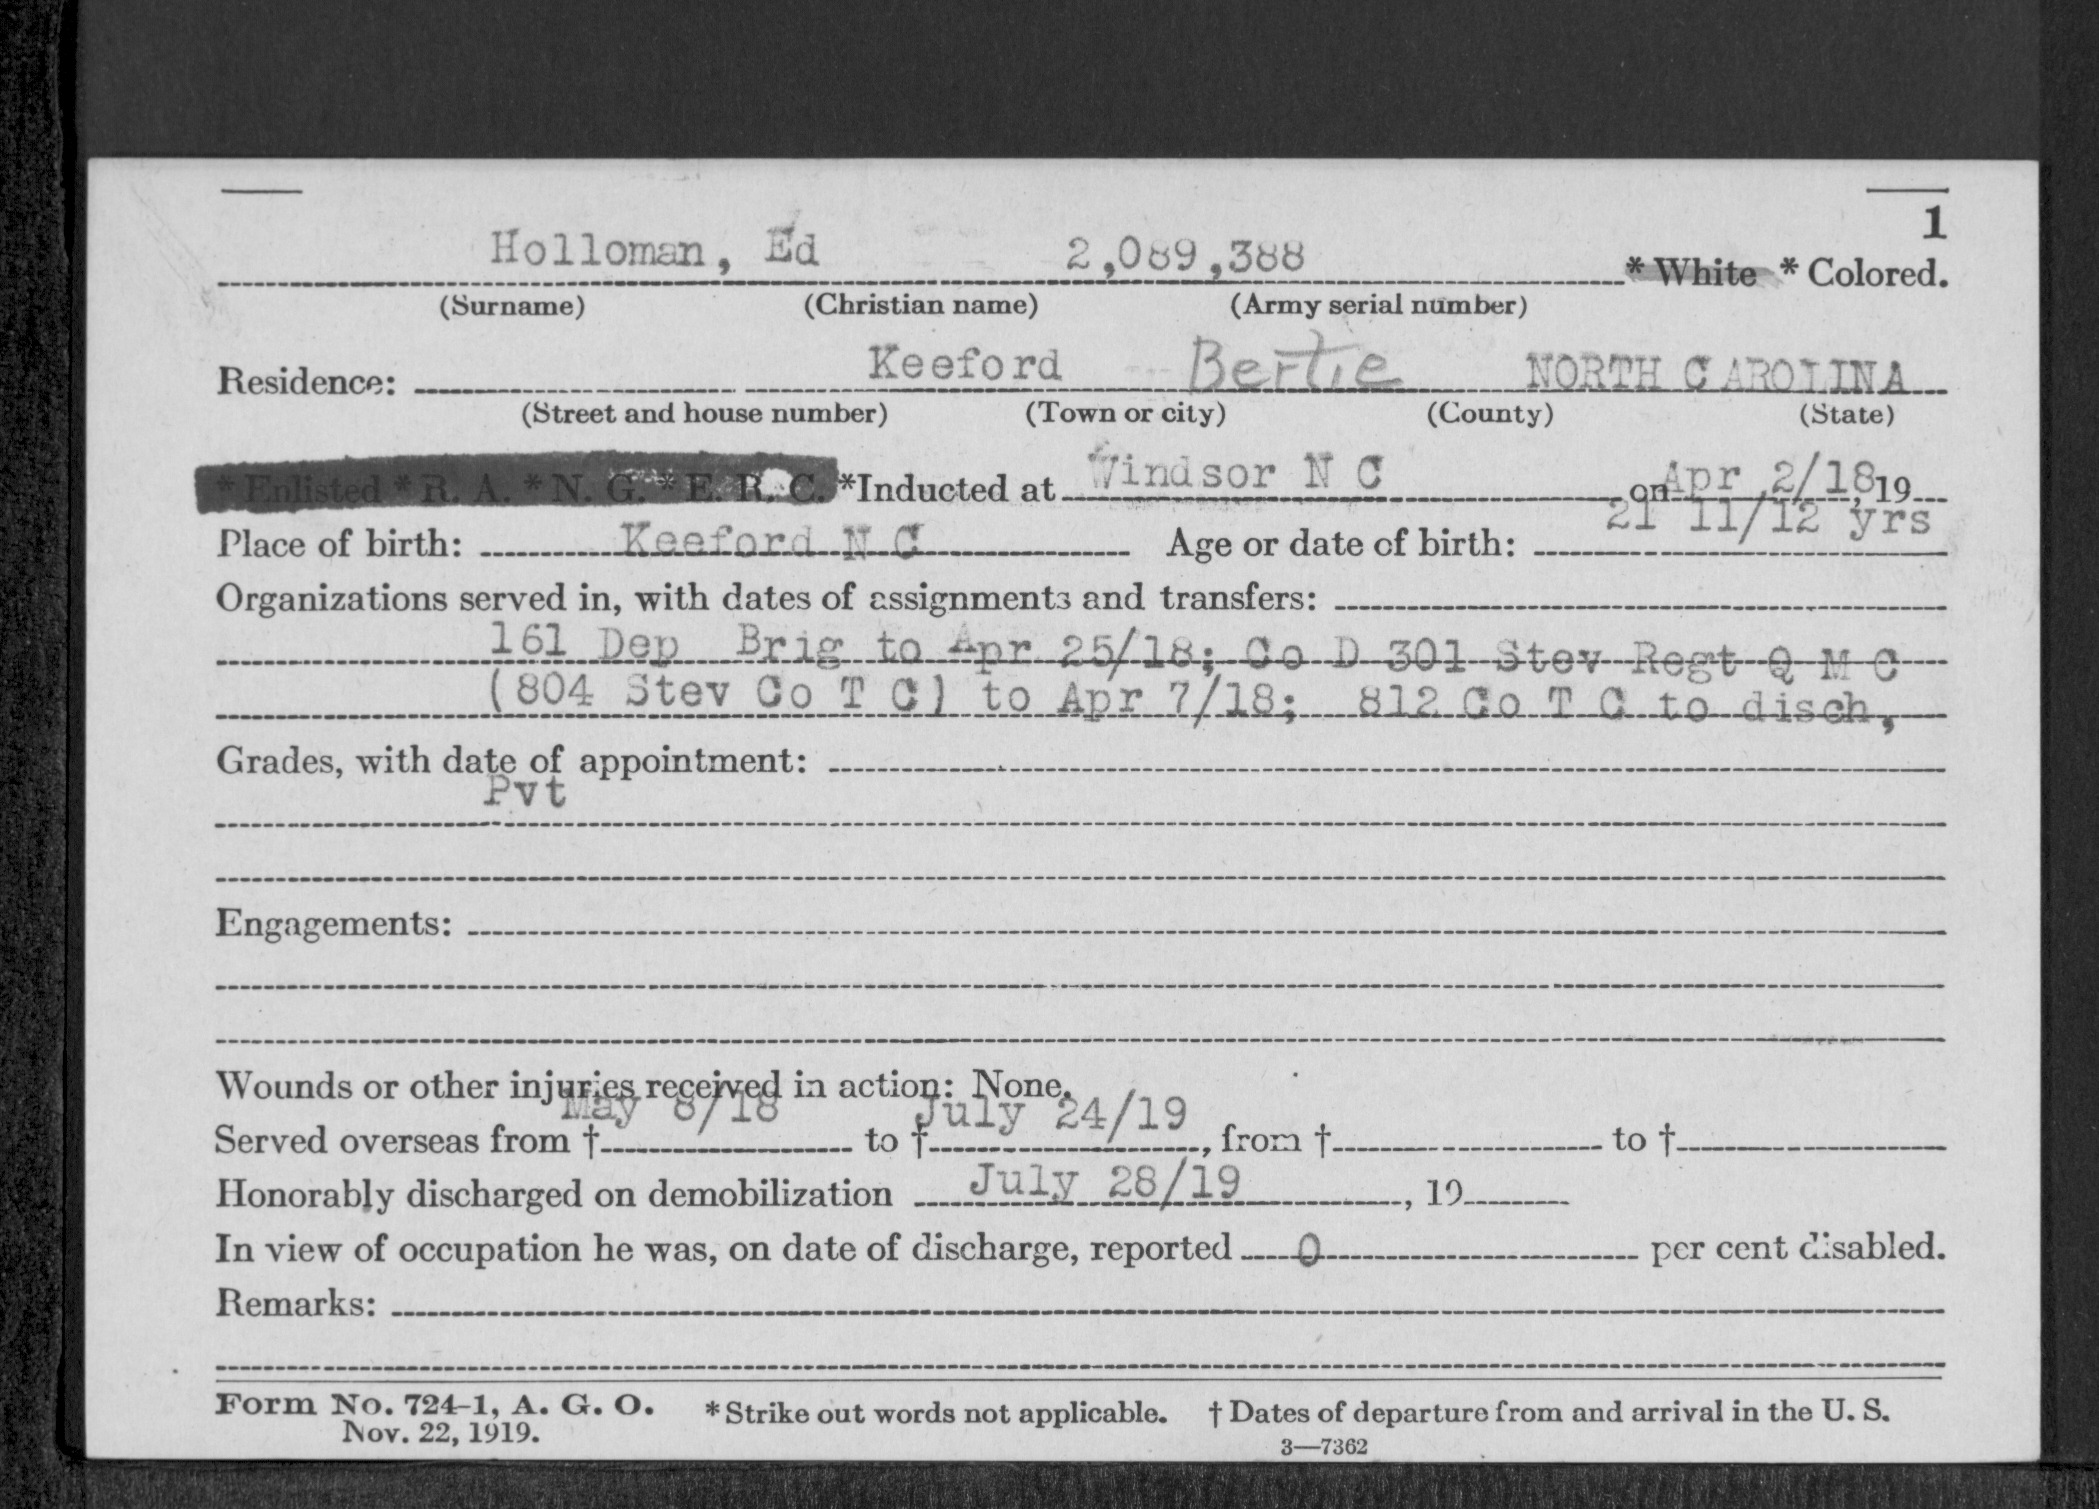 1
Holloman, Ed 2,089,388 * White * Colored.
(Surname) (Christian name) (Army serial number)
Residence: Keeford Bertie NORTH CAROLINA
(Street and house number) (Town or city) (County) (State)
* Enlisted * R. A. * N. G. * E. R. C. *Inducted at Windsor N C on Apr 2/18, 19
Place of birth: Keeford N C Age or date of birth: 21 11/12 yrs
Organizations served in, with dates of assignments and transfers:
161 Dep Brig to Apr 25/18; Co D 301 Stev Regt Q M C
(804 Stev Co T C) to Apr 7/18; 812 Co T C to disch,
Grades, with date of appointment:
Pvt
Engagements:
Wounds or other injuries received in action: None.
Served overseas from † May 8/18 to † July 24/19, from † to †
Honorably discharged on demobilization July 28/19, 19
In view of occupation he was, on date of discharge, reported 0 per cent disabled.
Remarks:
Form No. 724-1, A. G. O. * Strike out words not applicable. † Dates of departure from and arrival in the U. S.
Nov. 22, 1919.
3—7362